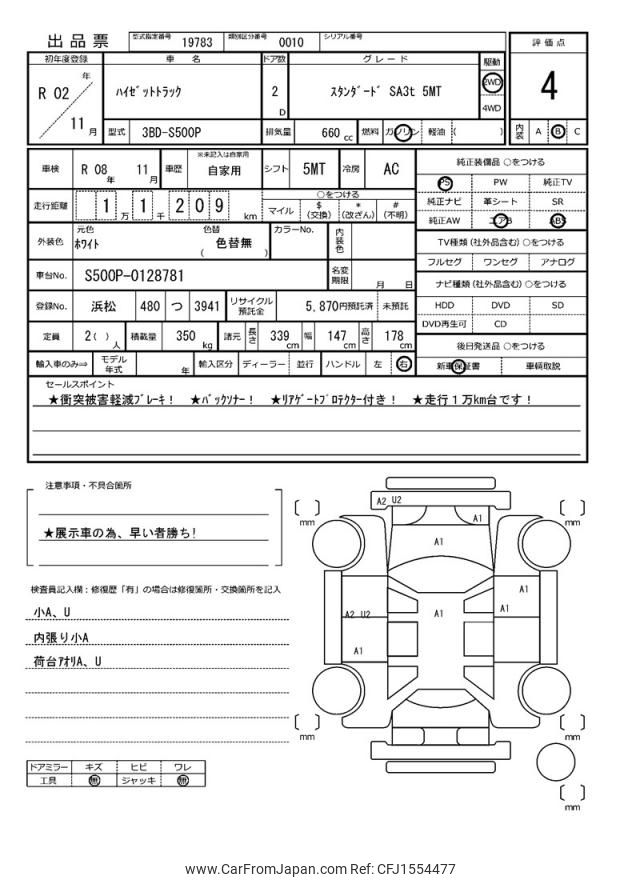 出品票 型式指定番号 19783 類別区分番号 0010 シリアル番号
評価点
4
初年度登録 車名 ドア数 グレード 駆動
R 02 年 11 月
ハイゼットトラック 2 D スタンダード SA3t 5MT 2WD 4WD
型式 3BD-S500P 排気量 660 cc 燃料 ガソリン 軽油 ( )
内装 A B C
車検 R 08 年 11 月 車歴 ※未記入は自家用 自家用 シフト 5MT 冷房 AC
純正装備品 ○をつける
PS PW 純正TV
純正ナビ 革シート SR
純正AW エアB ABS
走行距離 1 万 1 千 2 0 9 km
○をつける
マイル $ (交換) * (改ざん) # (不明)
TV種類 (社外品含む) ○をつける
フルセグ ワンセグ アナログ
外装色 元色 ホワイト 色替 色替無 ( ) カラーNo. 内装色
ナビ種類 (社外品含む) ○をつける
HDD DVD SD
DVD再生可 CD
車台No. S500P-0128781 名変期限 月 日
登録No. 浜松 480 つ 3941 リサイクル預託金 5,870円預託済 未預託
定員 2( ) 人 積載量 350 kg 諸元 長さ 339 cm 幅 147 cm 高さ 178 cm
後日発送品 ○をつける
新車保証書 車輌取説
輸入車のみ⇒ モデル年式 年 輸入区分 ディーラー 並行 ハンドル 左 右
セールスポイント
★衝突被害軽減ブレーキ! ★バックソナー! ★リアゲートプロテクター付き! ★走行1万km台です!
注意事項・不具合箇所
★展示車の為、早い者勝ち!
検査員記入欄:修復歴「有」の場合は修復箇所・交換箇所を記入
小A、U
内張り小A
荷台アオリA、U
ドアミラー キズ ヒビ ワレ
工具 無 ジャッキ 無
A2 U2
A1
A1
A1
A1
A1
A2 U2
A1
A1
mm
mm
mm
mm
mm
www.CarFromJapan.com Ref: CFJ1554477